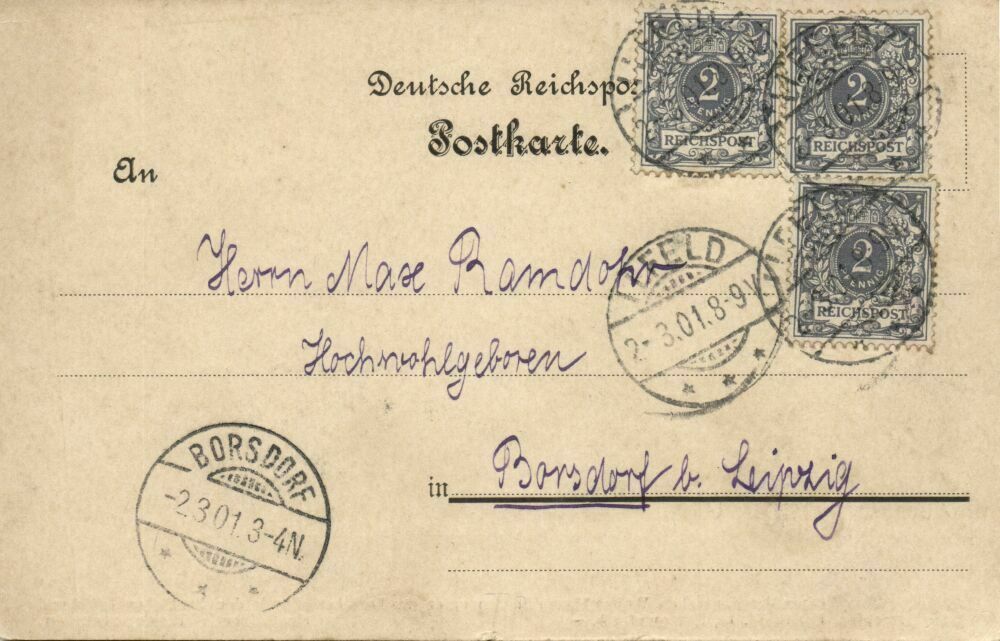 Deutsche Reichspos
Postkarte.
An
2
PFENNIG
REICHSPOST
2
PFENNIG
REICHSPOST
2
PFENNIG
REICHSPOST
Herrn Max Ramdohr
Hochwohlgeboren
in Borsdorf b. Leipzig
2-3.01.8-9V
BORSDORF
-2.3.01.3-4N.